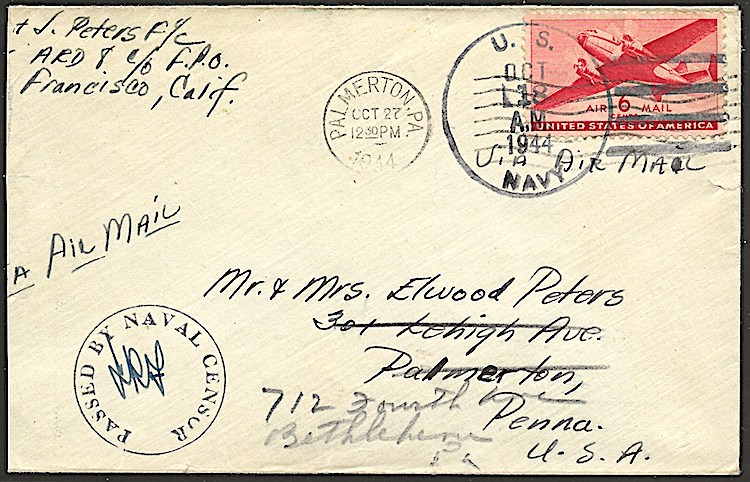 t J. Peters F/c
ARD 8 c/o F.P.O.
Francisco, Calif.
PALMERTON, PA.
OCT 27
12 30 PM
1944
U. S.
OCT
18
A.M.
1944
NAVY
AIR 6 MAIL
CENTS
UNITED STATES OF AMERICA
Via AIR MAIL
A AIR MAIL
Mr. & Mrs. Elwood Peters
301 Lehigh Ave.
Palmerton,
712 Fourth Ave
Penna.
Bethlehem
Pa
U. S. A.
PASSED BY NAVAL CENSOR